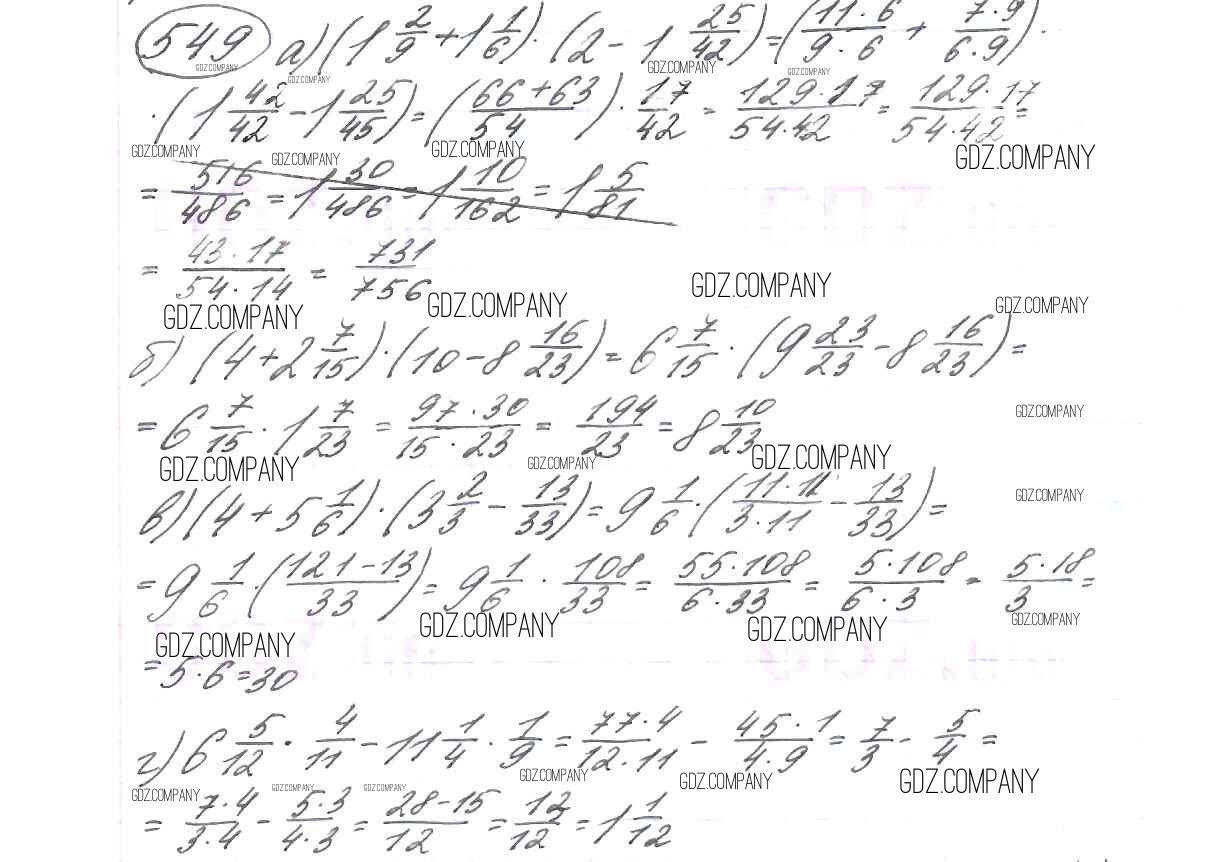 549 а) (1 2/9 + 1 1/6) · (2 - 1 25/42) = (11·6/9·6 + 7·9/6·9) ·
GDZ.COMPANY GDZ.COMPANY GDZ.COMPANY GDZ.COMPANY
· (1 42/42 - 1 25/45) = (66+63/54) · 17/42 = 129·17/54·42 = 129·17/54·42 =
GDZ.COMPANY GDZ.COMPANY GDZ.COMPANY GDZ.COMPANY
= 516/486 = 1 30/486 = 1 10/162 = 1 5/81
= 43·17/54·14 = 731/756
GDZ.COMPANY GDZ.COMPANY GDZ.COMPANY GDZ.COMPANY
б) (4 + 2 7/15) · (10 - 8 16/23) = 6 7/15 · (9 23/23 - 8 16/23) =
GDZ.COMPANY
= 6 7/15 · 1 7/23 = 97·30/15·23 = 194/23 = 8 10/23
GDZ.COMPANY GDZ.COMPANY GDZ.COMPANY
в) (4 + 5 1/6) · (3 2/3 - 13/33) = 9 1/6 · (11·11/3·11 - 13/33) =
GDZ.COMPANY
= 9 1/6 · (121-13/33) = 9 1/6 · 108/33 = 55·108/6·33 = 5·108/6·3 = 5·18/3 =
GDZ.COMPANY GDZ.COMPANY GDZ.COMPANY GDZ.COMPANY
= 5·6 = 30
г) 6 5/12 · 4/11 - 11 1/4 · 1/9 = 77·4/12·11 - 45·1/4·9 = 7/3 - 5/4 =
GDZ.COMPANY GDZ.COMPANY GDZ.COMPANY GDZ.COMPANY GDZ.COMPANY GDZ.COMPANY
= 7·4/3·4 - 5·3/4·3 = 28-15/12 = 13/12 = 1 1/12